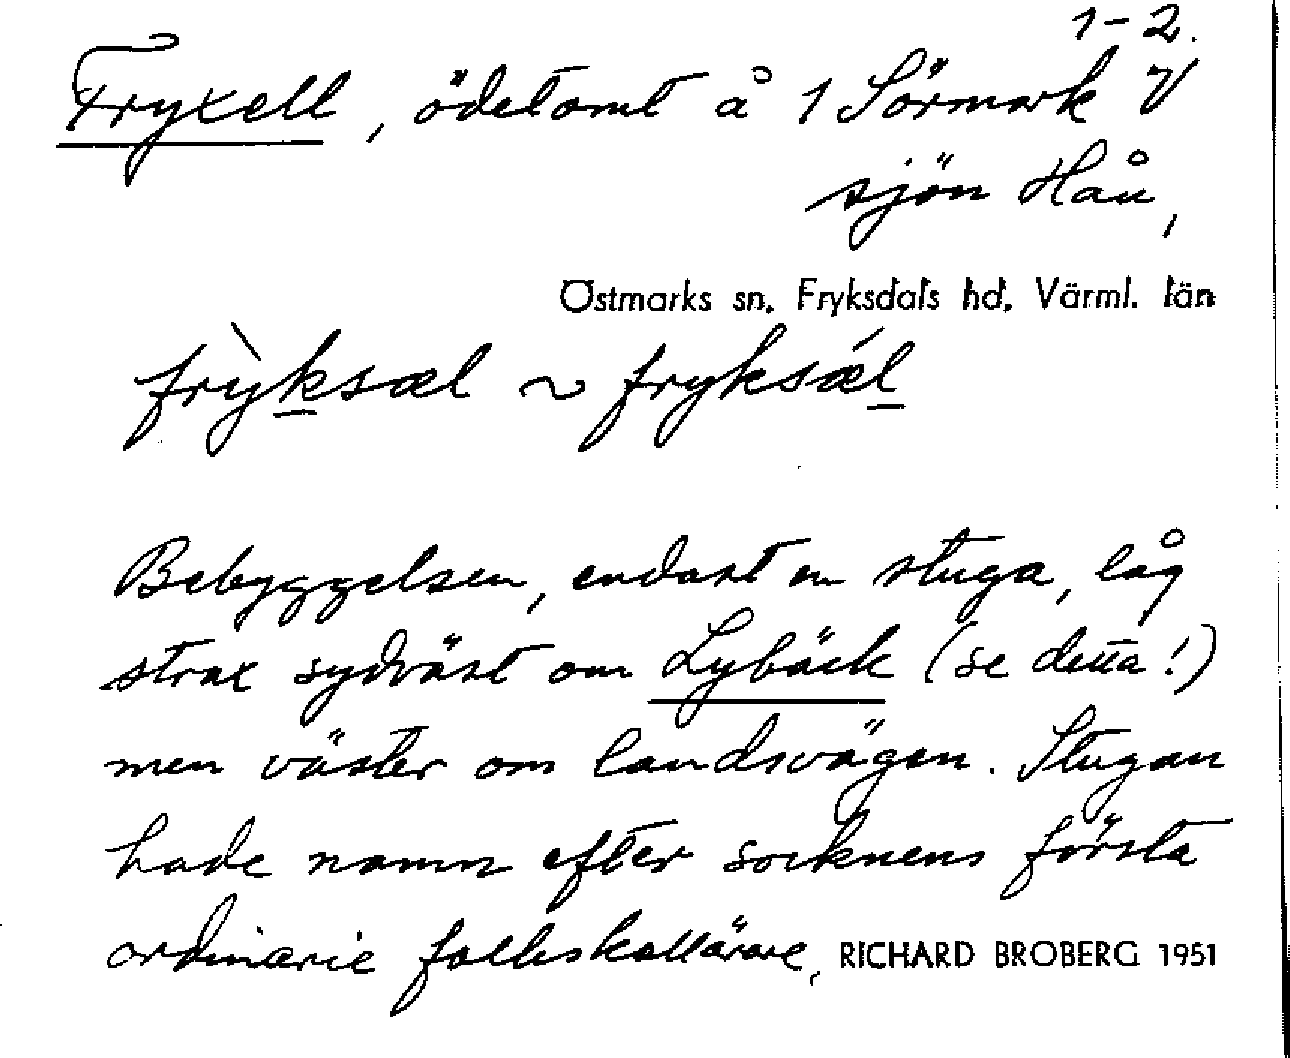 1-2.
Fryxell, ödetomt å 1 Sörmark V
sjön Håu,
Östmarks sn. Fryksdals hd. Värml. län
frỳksæl ~ fryksǽl
Bebyggelsen, endast en stuga, låg
strax sydväst om Lybäck (se detta!)
men väster om landsvägen. Stugan
hade namn efter socknens första
ordinarie folkskollärare, RICHARD BROBERG 1951